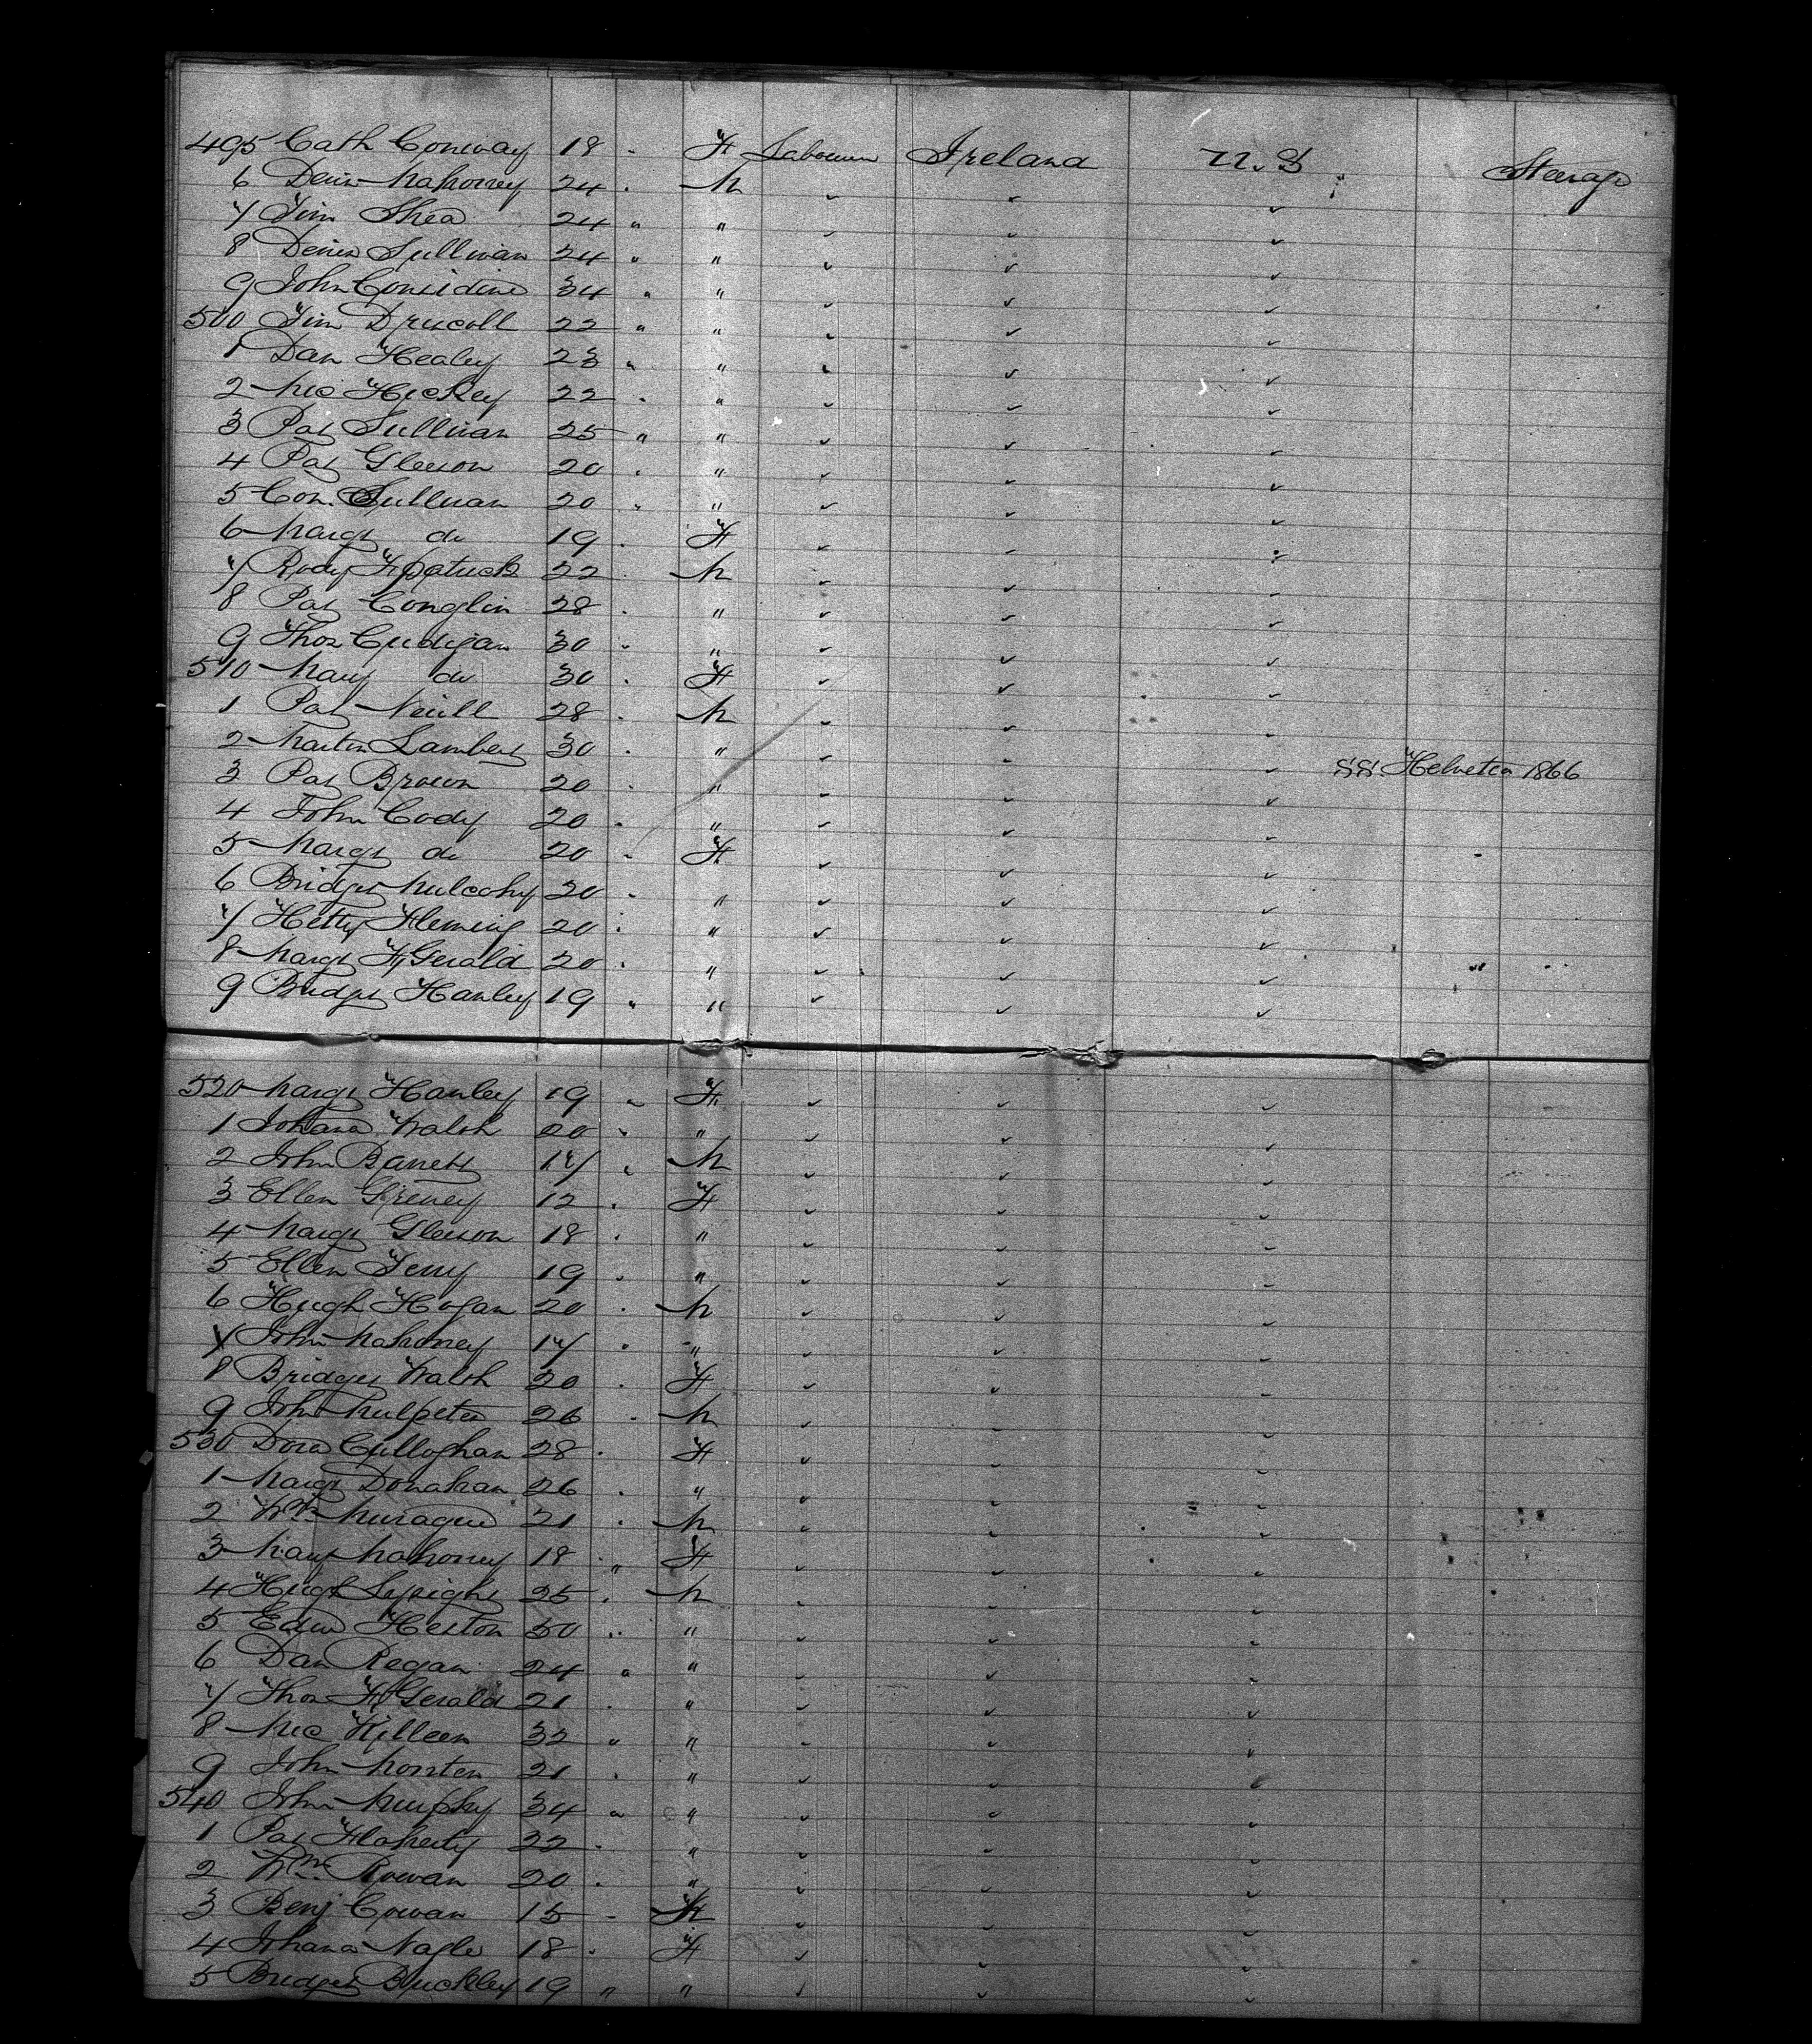 495 Cath Conway 18 " F Labourer Ireland U.S Steerage
6 Denis Mahoney 24 " M
7 Tim Shea 24 " "
8 Denis Sullivan 24 " "
9 John Considine 34 " "
500 Tim Driscoll 22 " "
1 Dan Healey 23 " "
2 Mic Hickey 22 " "
3 Pat Sullivan 25 " "
4 Pat Gleeson 20 " "
5 Con. Sullivan 20 " "
6 Margt do 19 " F
7 Rody Fzpatrick 22 " M
8 Pat Conglin 28 " "
9 Thos Cudigan 30 " "
510 Mary do 30 " F
1 Pat Neill 28 " M
2 Martin Lambert 30 " "
SS. Helvetia 1866
3 Pat Brown 20 " "
4 John Cody 20 " "
5 Margt do 20 " F
6 Bridget Mulcahy 20 " "
7 Hetty Fleming 20 " "
8 Margt FzGerald 20 " "
9 Bridget Hanley 19 " "
520 Margt Hanley 19 " F
1 Johana Walsh 20 " "
2 John Barrett 17 " M
3 Ellen Greney 12 " F
4 Margt Gleeson 18 " "
5 Ellen Terry 19 " "
6 Hugh Hogan 20 " M
7 John Mahoney 17 " "
8 Bridget Walsh 20 " F
9 John Mulpeter 26 " M
530 Dora Culloghan 28 " F
1 Margt Donahan 26 " "
2 Wm 21 " M
3 Mary Mahoney 18 " F
4 Hugh 25 " M
5 Edwd Heston 50 " "
6 Dan Regan 24 " "
7 Thos FzGerald 21 " "
8 Mic Killeen 32 " "
9 John 21 " "
540 John Murphy 34 " "
1 Pat Flaherty 22 " "
2 Wm Rowan 20 " "
3 Benj Cowan 15 "
4 Johana Nagle 18 " F
5 Bridget Buckley 19 " "